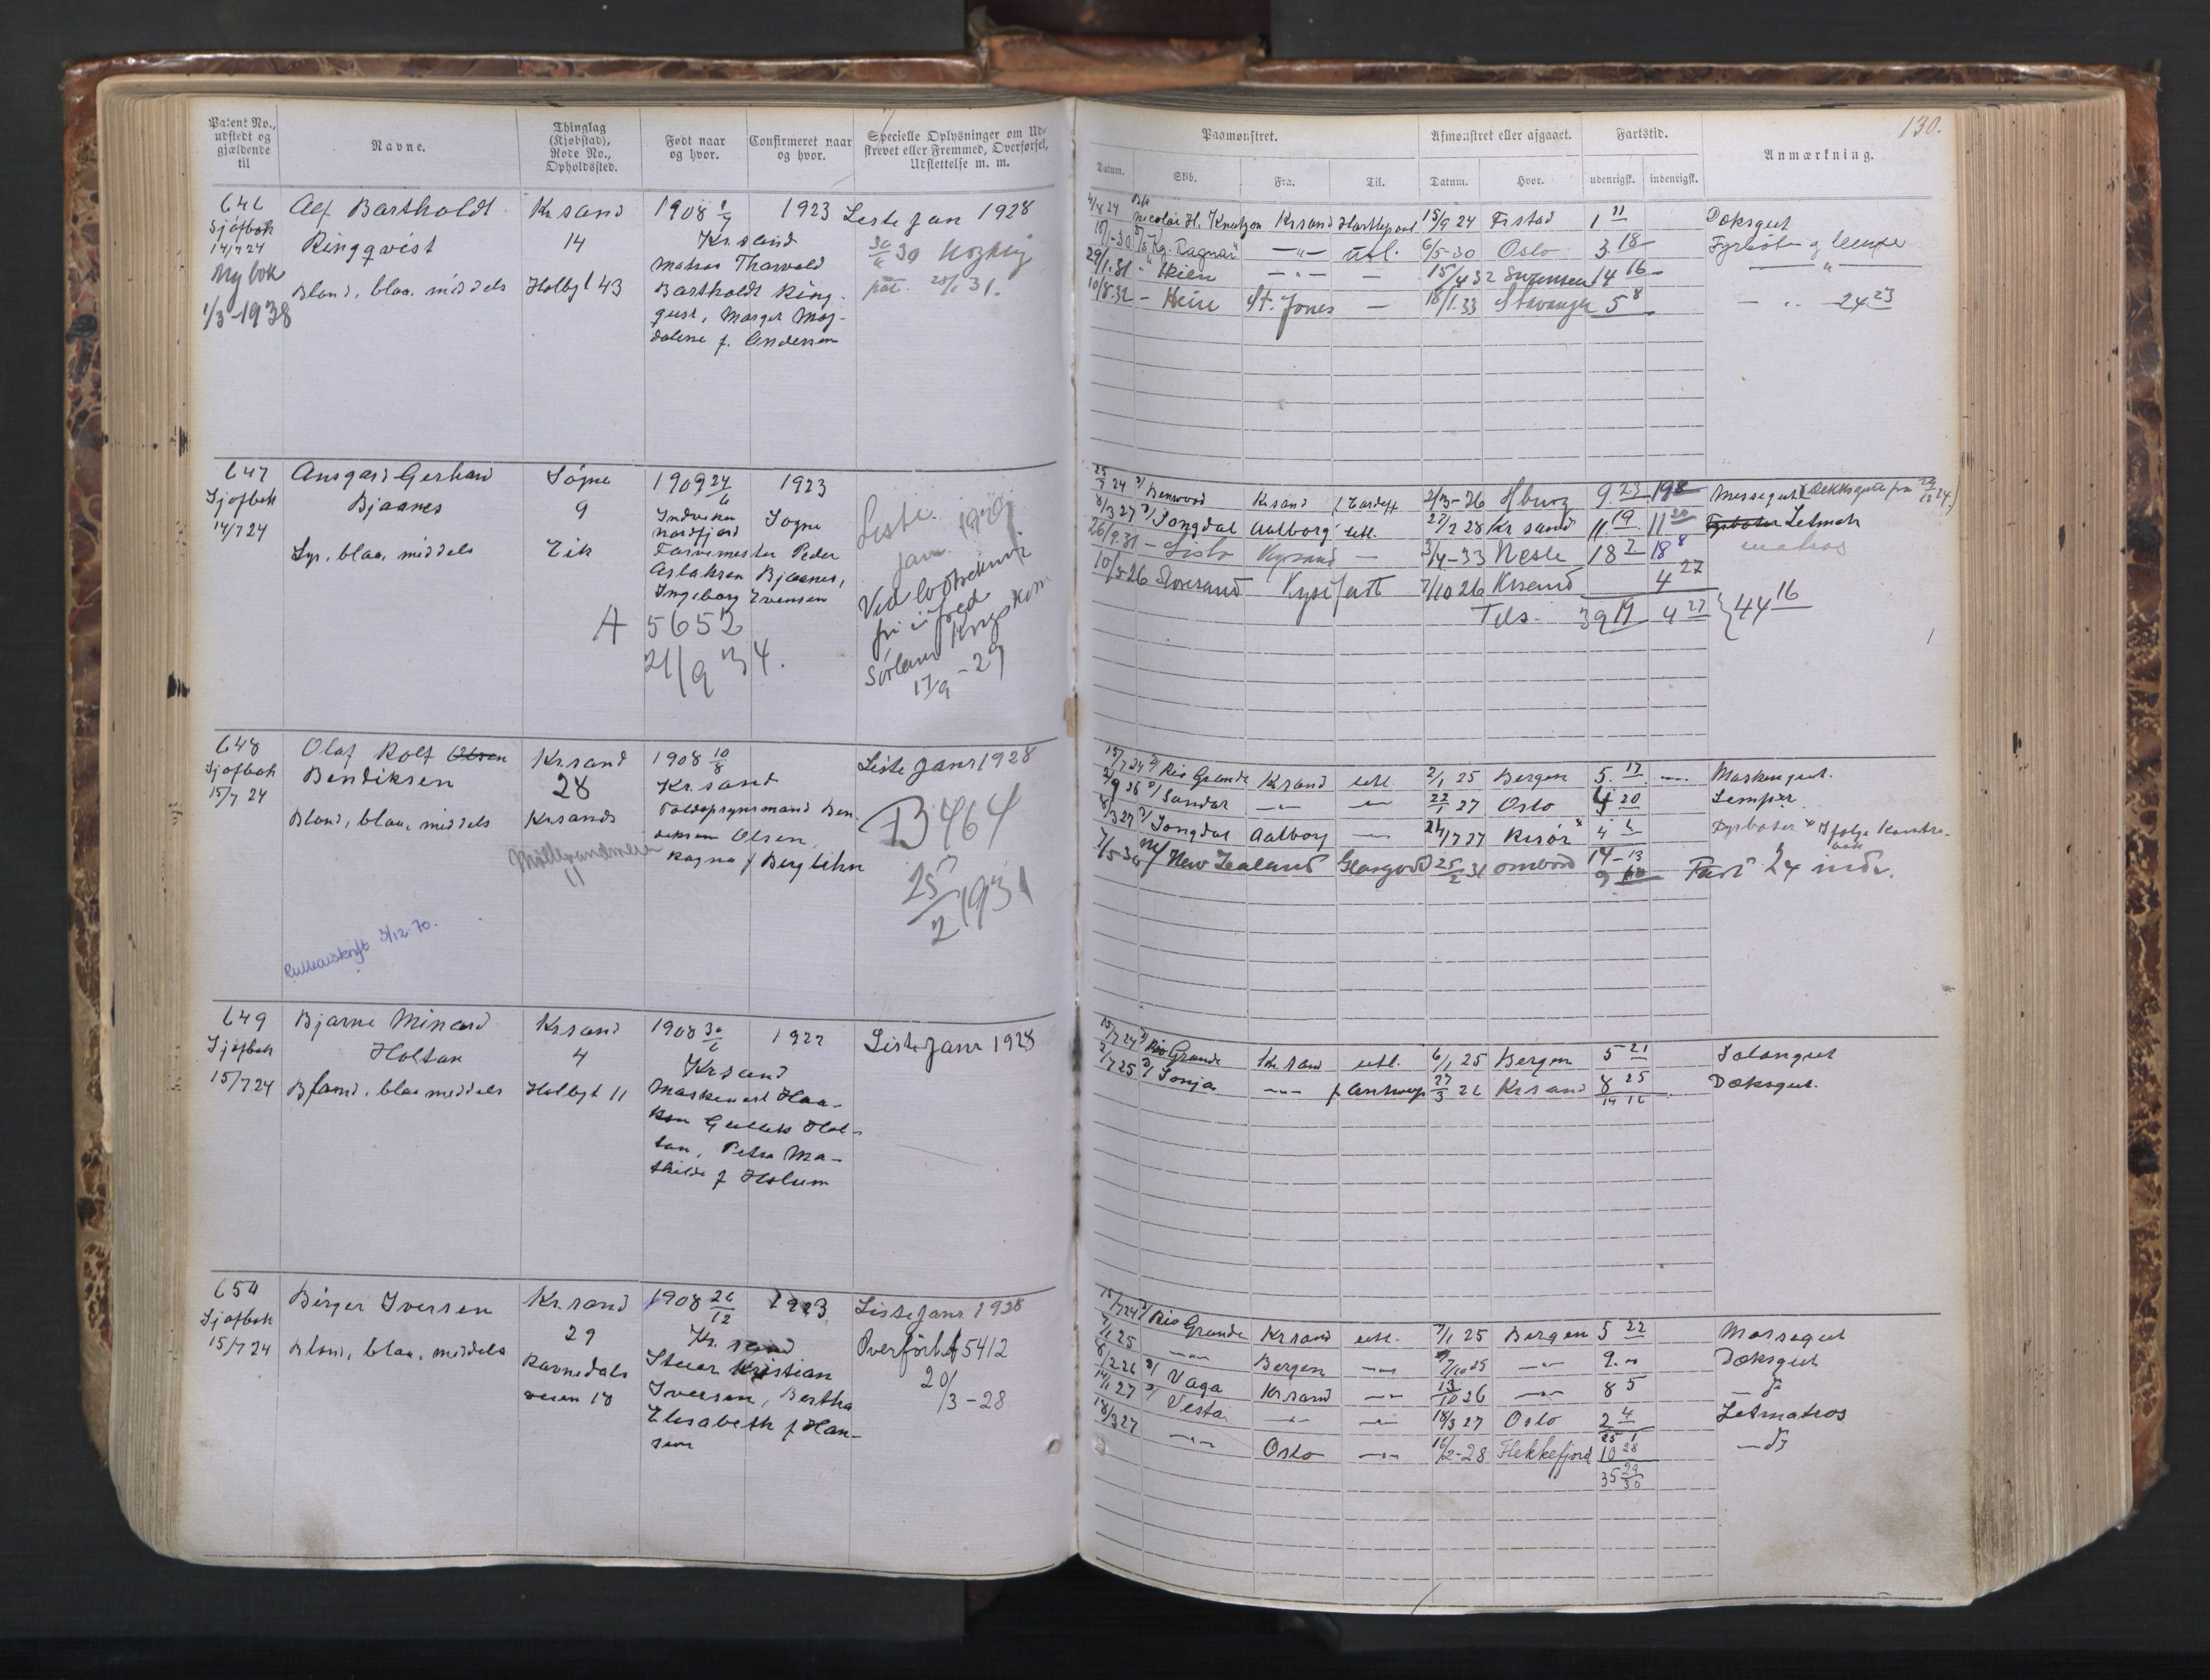 Patent No., udstedt og gjældende til
Navne.
Thinglag (Kjøbstad). Rode No., Opholdssted.
Født naar og hvor.
Confirmeret naar og hvor.
Specielle Oplysninger om Udskrevet eller Fremmed, Overførsel, Udslettelse m. m.
646
Sjøfbok
14/7 24
Ny bok
1/3-1938
Alf Bartholdt
Ringqvist
Blond, blaa, middels
Kr.sand
14
Holbgt 43
1908 1/9
Kr.sand
Matros Thorvald
Bartholdt Ring-
qvist, Margit Mag-
dalene f. Andersen
1923
Liste Jan 1928
647
Sjøfbok
14/7 24
Ansgard Gerhard
Bjaanes
Lys. blaa, middels
Søgne
9
Eik
1909 24/6
Indviken
Nordfjord
Farvemester Peder
Aslaksen Bjaanes,
Ingeborg Evensen
A 5652
21/9 34.
1923
Sogne
Liste
jan. 1929
17/9-29
648
Sjøfbok
15/7 24
Olaf Rolf Olsen
Bendiksen
Blond, blaa, middels
Rulleavskrift 3/12 70.
Kr.sand
28
Krsands
1908 10/8
Kr.sand
Olsen,
Ragna f Berglihn
Liste Janr 1928
B 464
25/2 1931
649
Sjøfbok
15/7 24
Bjarne Minard
Holtan
Blond, blaa middels
Krsand
4
Holbgt 11
1908 30/6
Krsand
Maskinist Haa-
kon Hol-
tan, Petra Ma-
thilde f Holum
1922
Liste Janr 1928
650
Sjøfbok
15/7 24
Birger Iversen
Blond, blaa, middels
Kr.sand
29
Ravnedals
veien 18
1908 26/12
Kr.sand
Stuer Kristian
Iversen, Bertha
Elisabeth f Han-
sen
1923
Liste Janr 1928
Overført A 5412
20/3-28
130.
Paamønstret.
Afmønstret eller afgaaet.
Fartstid.
Anmærkning.
Datum.
Skib.
Fra.
Til.
Datum.
Hvor.
udenrigsk.
indenrigsk.
4/8 24 Nicolai H. Knudtzon Krsand Hartlepool 15/9 24 Frstad 1 11 Dæksgut
Kg. Ragnar —"— utl. 6/5-30 Oslo 3 18
29/1.31 " Heien —"— 15/4 32 14 16
10/8.32 — St. Jones — 18/1.33 Stavanger 5 8 — " — 24 23
25/7 24 Benwood Krsand f Cardiff 2/3-26 Hburg 9 23 Messegut
8/3 27 Songdal Aalborg utl. 27/2 28 Kr sand 11 19 11 20 Letmatr
26/9.31 — — 3/4-33 Nesle 18 7 18 8 matros
10/5-26 7/10 26 Krsand 4 27
Tils. 39 19 4 27 } 44 16
15/7 24 Rio Grande Krsand utl. 2/1 25 Bergen 5. 17 — Maskingut.
2/9 26 Sandar —"— —"— 22/1 27 Oslo 4 20 Lemper
8/3 27 Songdal Aalborg —"— 24/7 27 Risør 4 6 Fyrbøter
7/5-30 New Zealand Glasgow 25/2 31 ombord 14-13
Fart 24 mdr.
15/7 24 Rio Grande Krsand utl. 6/1 25 Bergen 5 21 Salongut
2/7 25 Sonja —"— f Antwerp 27/3 26 Krsand 8 25 Dæksgut.
14 16
15/7 24 Rio Grande Krsand utl. 7/1 25 Bergen 5 22 Messegut
7/1 25 —"— Bergen —"— 7/10 25 —"— 9. " Dæksgut
8/2 26 Vaga Krsand —"— 13/10 26 —"— 8 5 —"—
14/1 27 Vesta —"— —"— 18/3 27 Oslo 2 4 Letmatros
25 1
18/3 27 —"— Oslo —"— 16/2-28 Flekkefjord 10 28 —do
35 29/30